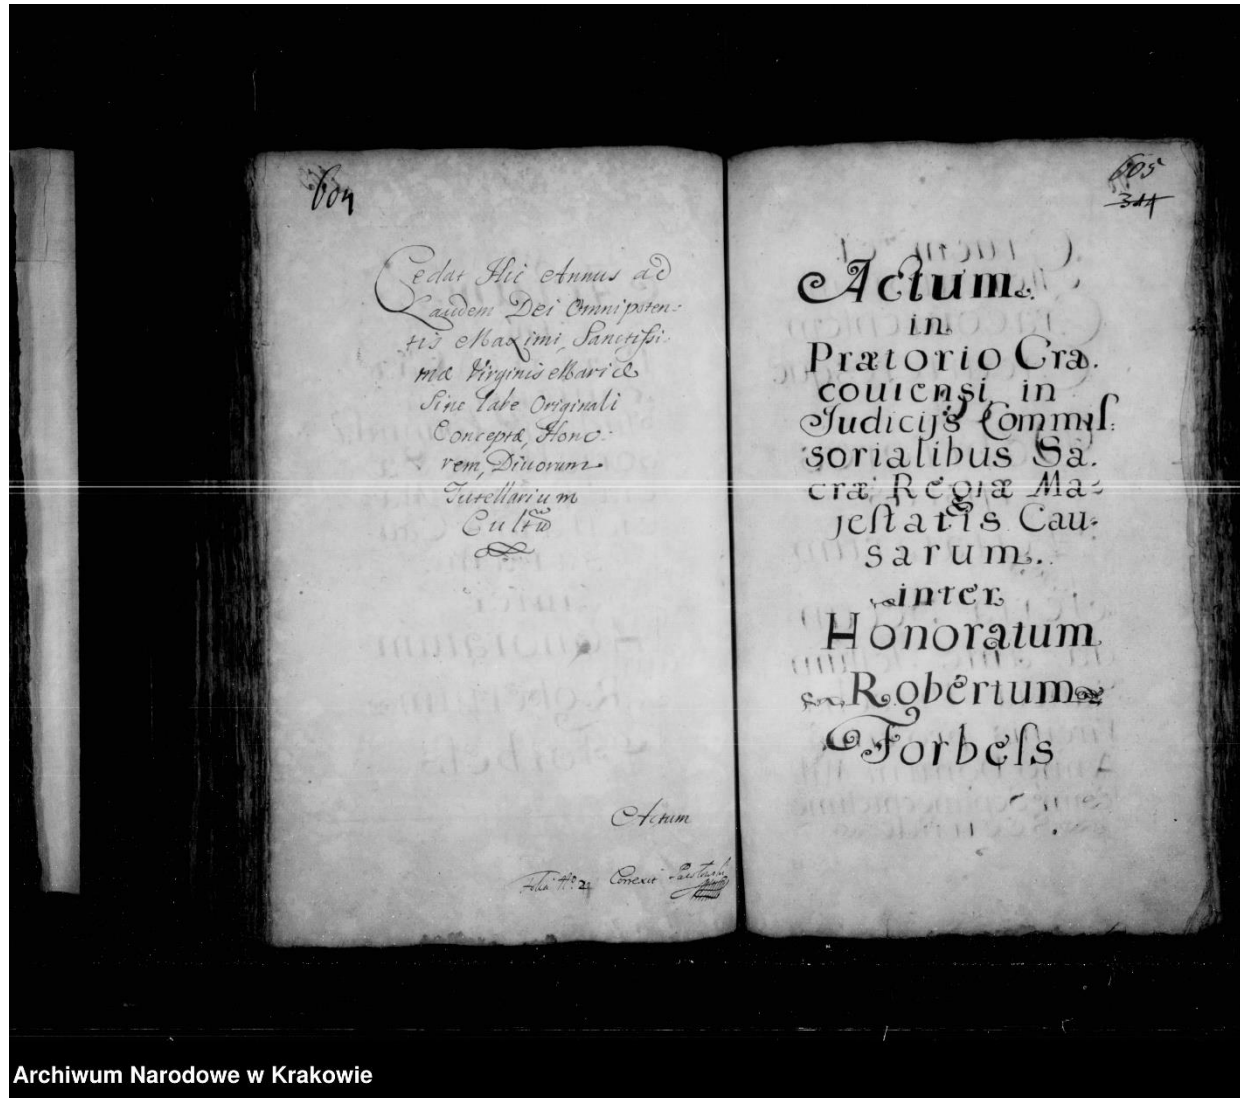 604
Cedat Hic Annus ad
Laudem Dei Omnipoten:
tis Maximi, Sanctissi:
mæ Virginis Mariæ
Sine Labe Originali
Conceptæ, Hono:
rem, Divorum
Tutellarium
Cultũ
Actum
Correxit
605
344
Actum
in
Prætorio Cra.
couiensi in
Judicijs Commiſ:
sorialibus Sa.
cræ Regiæ Ma:
jeſtatis Cau:
sarum.
inter
Honoratum
Robertum
Forbeſs
Archiwum Narodowe w Krakowie